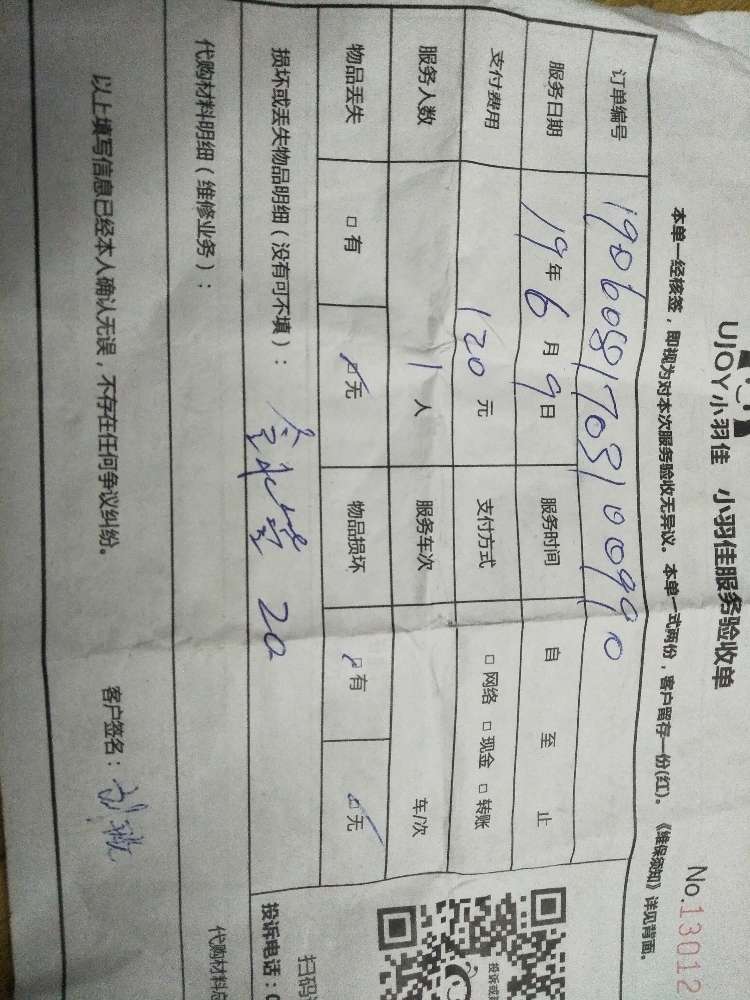 UJOY小羽佳 小羽佳服务验收单
No.13012
本单一经核签，即视为对本次服务验收无异议。本单一式两份，客户留存一份(红)。《维保须知》详见背面。
订单编号
服务日期 19年6月9日 服务时间 自 至 止
支付费用 120元 支付方式 □网络 □现金 □转账
服务人数 1人 服务车次 车/次
物品丢失 □有 □无 物品损坏 □有 □无
损坏或丢失物品明细（没有可不填）： 20
代购材料明细（维修业务）：
代购材料
以上填写信息已经本人确认无误，不存在任何争议纠纷。 客户签名：
投诉电话：
扫码